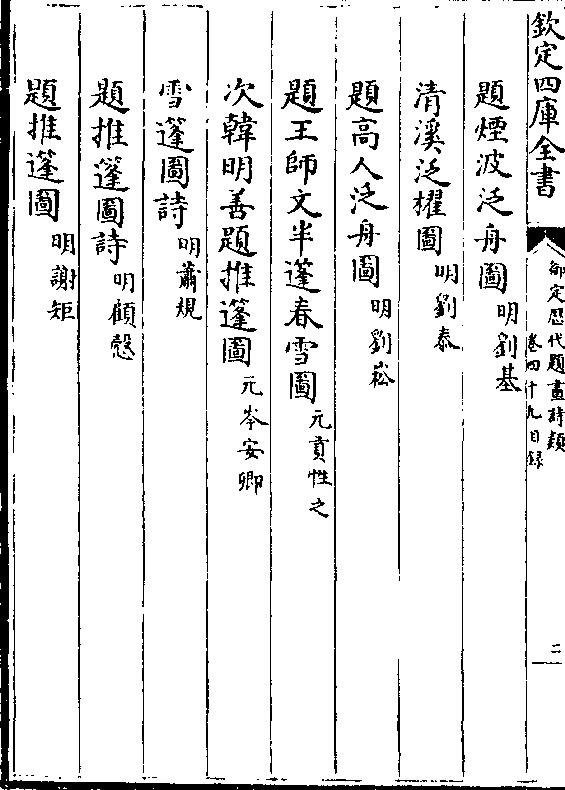 欽定四庫全書
御定歷代題畫詩類
卷四十九目錄
二
題煙波泛舟圖 明劉基
清溪泛櫂圖 明劉泰
題高人泛舟圖 明劉崧
題王師文半篷春雪圖 元貢性之
次韓明善題推篷圖 元岑安卿
雪篷圖詩 明蕭規
題推篷圖詩 明顧愨
題推篷圖 明謝矩